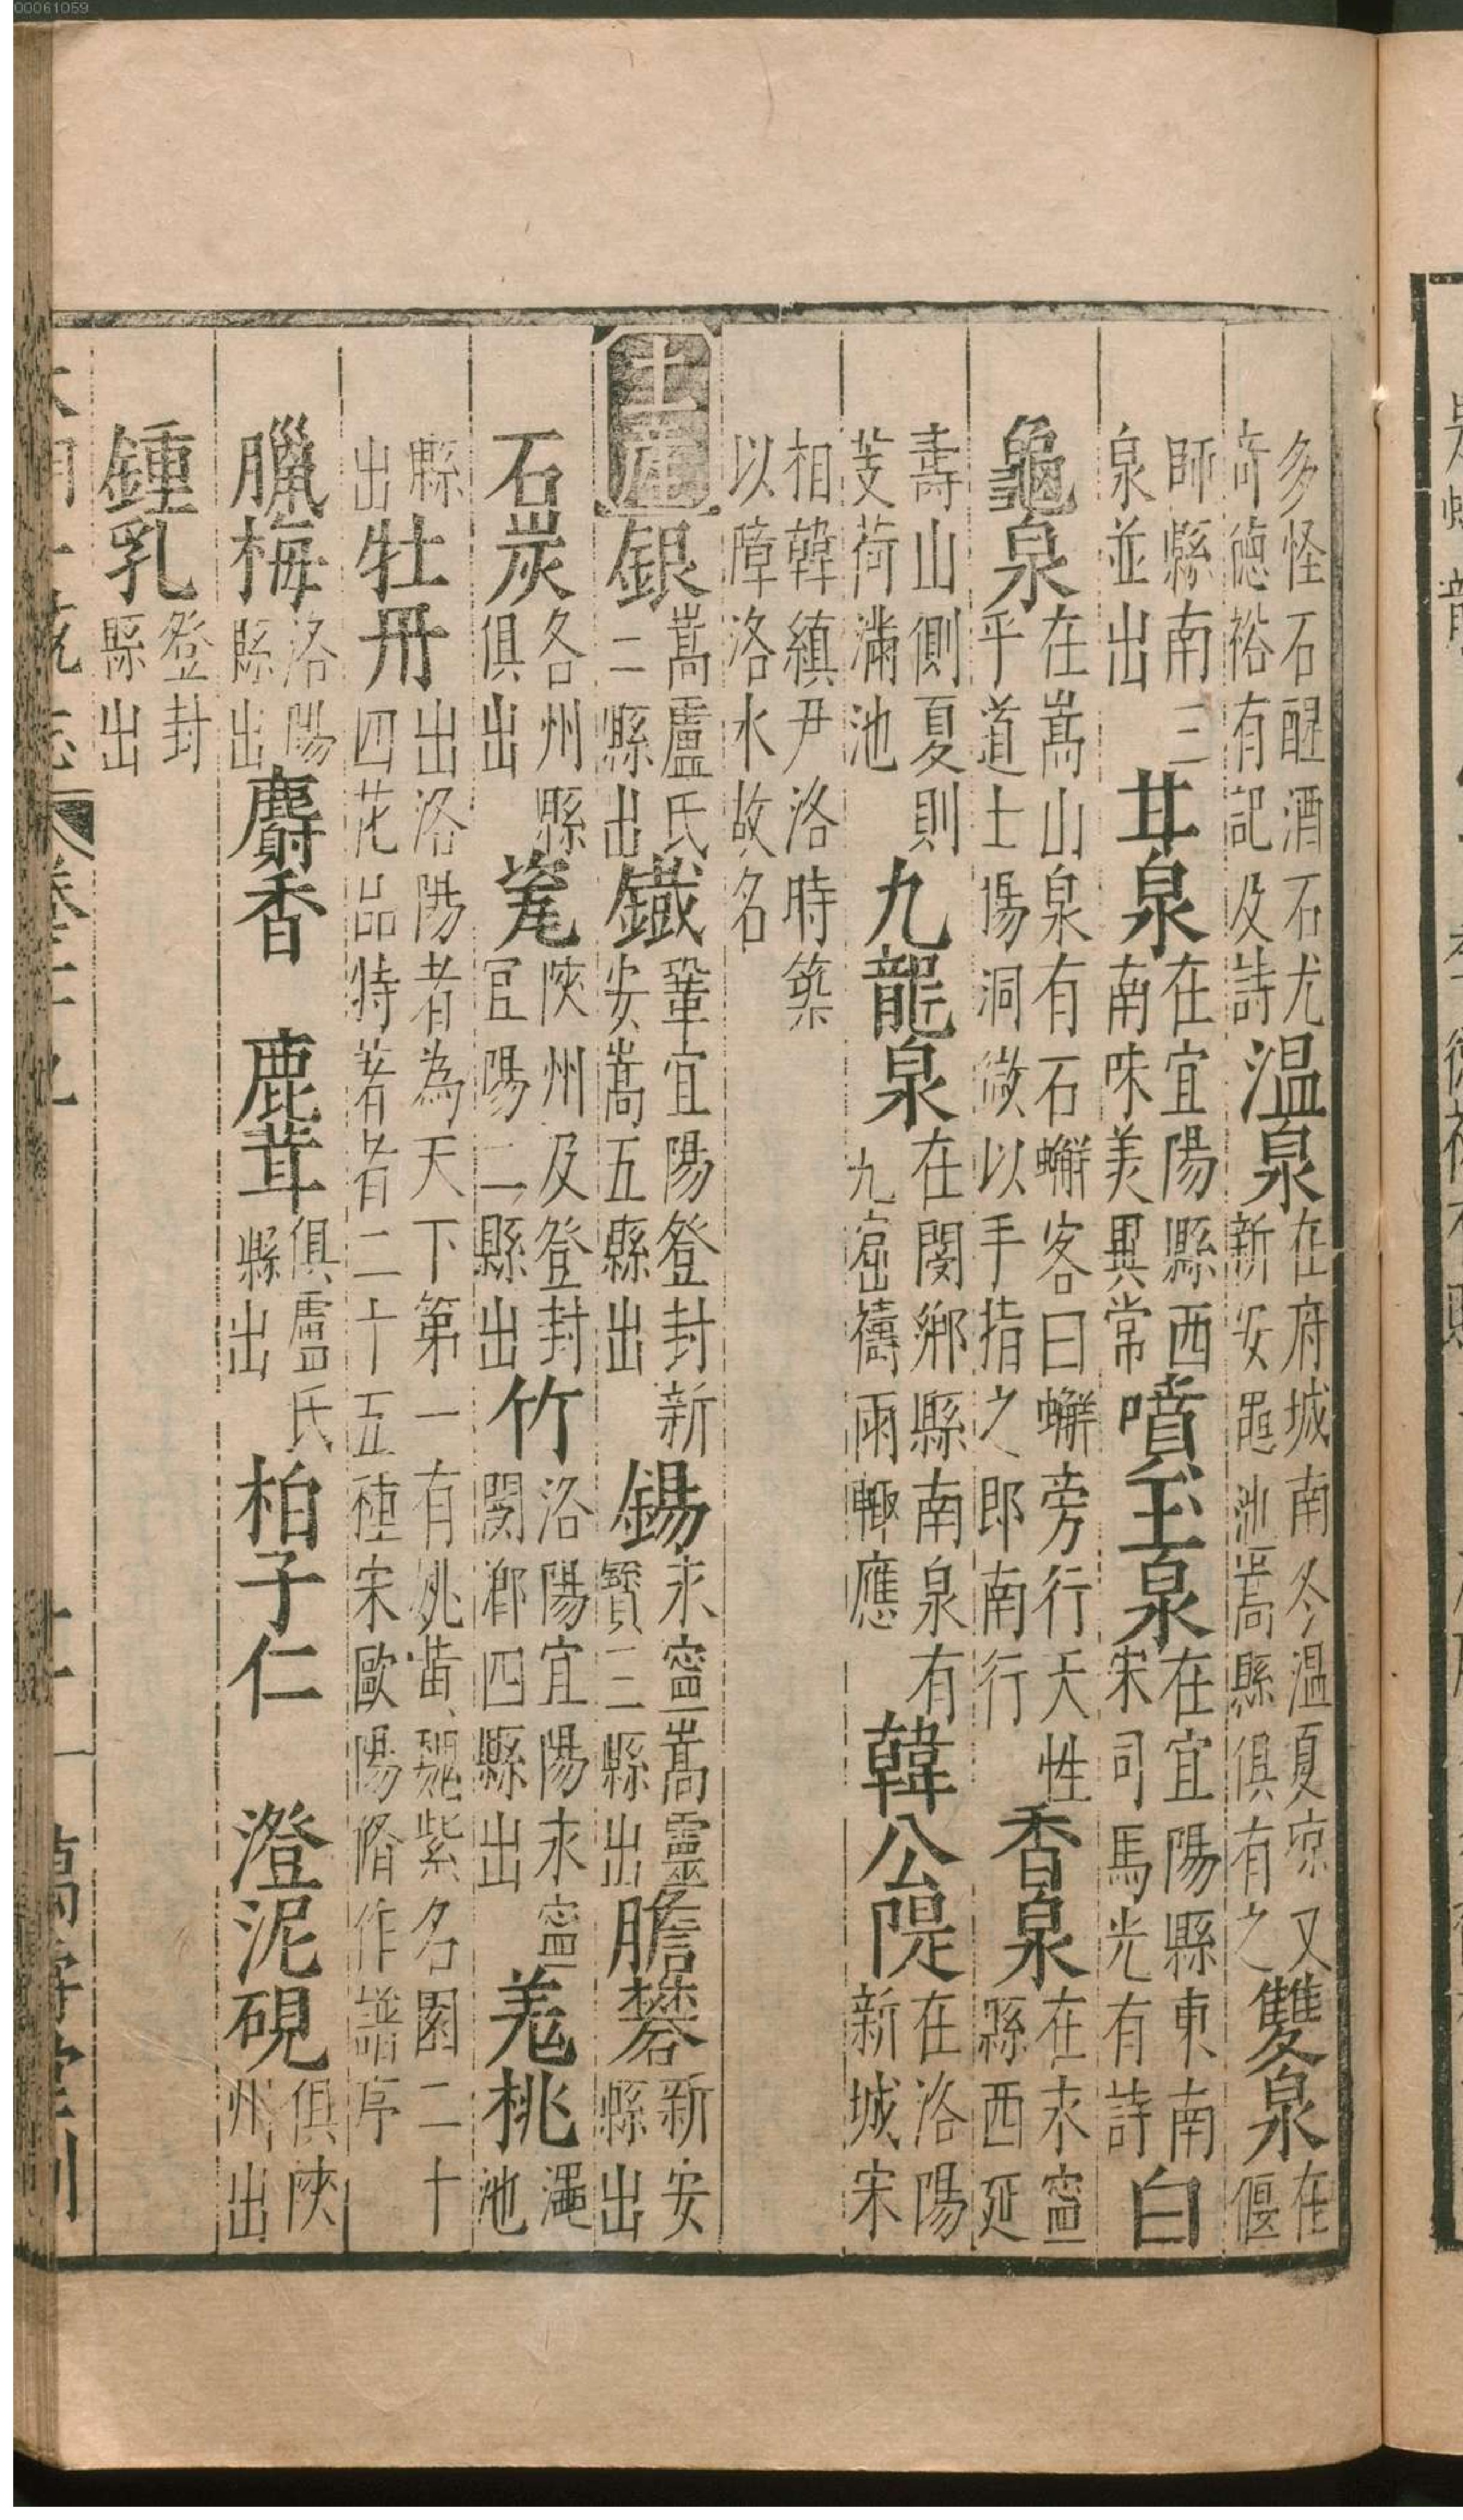 多怪石醒酒石尤奇德裕有記及詩溫泉在府城南冬温夏凉又新安黽池嵩縣俱有之雙泉在偃
師縣南三泉並出甘泉在宜陽縣西南味美異常噴玉泉在宜陽縣東南宋司馬光有詩白
龜泉在嵩山泉有石蠏客曰蠏旁行天性平道士楊洞微以手指之即南行香泉在永寧縣西延
壽山側夏則芰荷滿池九龍泉在閿鄉縣南泉有九窟禱雨輙應韓公隄在洛陽新城宋
相韓縝尹洛時築以障洛水故名
土產銀嵩盧氏二縣出鐵鞏宜陽登封新安嵩五縣出錫永寧嵩靈寳三縣出膽礬新安縣出
石炭各州縣俱出瓷陝州及登封宜陽二縣出竹洛陽宜陽永寧閿鄉四縣出羗桃澠池
縣出牡丹出洛陽者為天下第一有姚黃魏紫名園二十四花品特著者二十五種宋歐陽脩作譜序
臘梅洛陽縣出麝香 鹿茸俱盧氏縣出柏子仁 澄泥硯俱陝州出
鍾乳登封縣出
大明一統志 卷二十九 萬壽堂刊
00061059